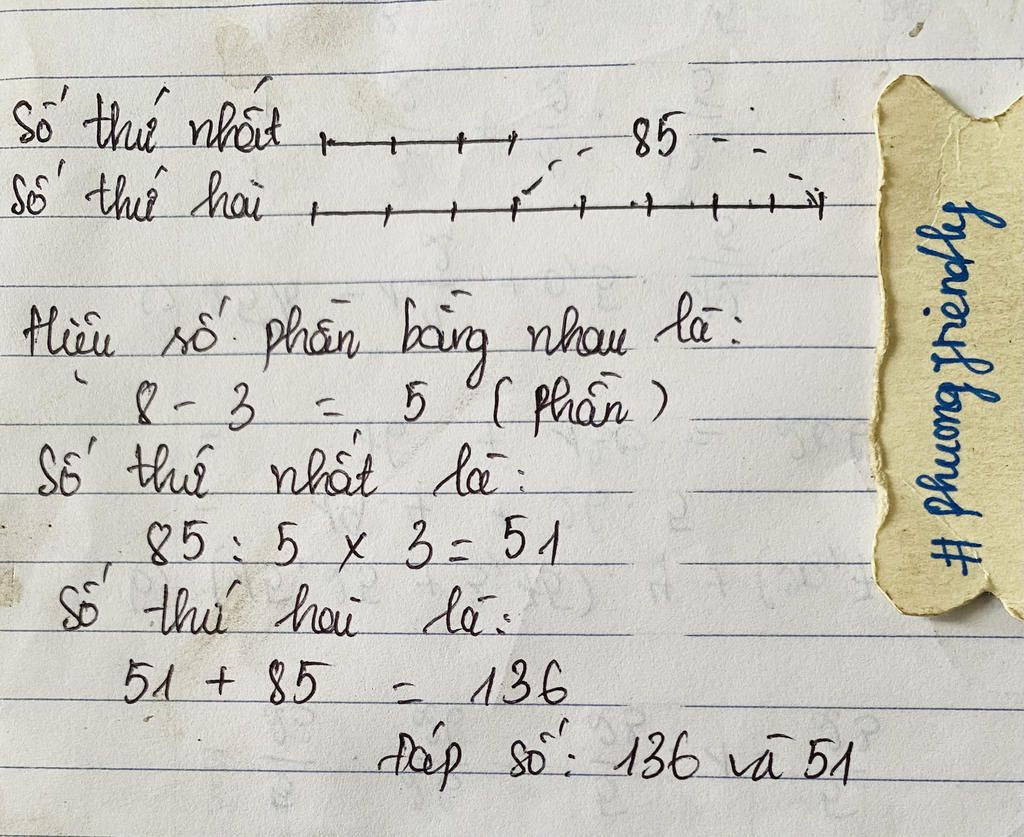 Số thứ nhất 85
Số thứ hai
Hiệu số phần bằng nhau là:
8 - 3 = 5 (phần)
Số thứ nhất là:
85 : 5 x 3 = 51
Số thứ hai là:
51 + 85 = 136
Đáp số: 136 và 51
#phuongfriendly